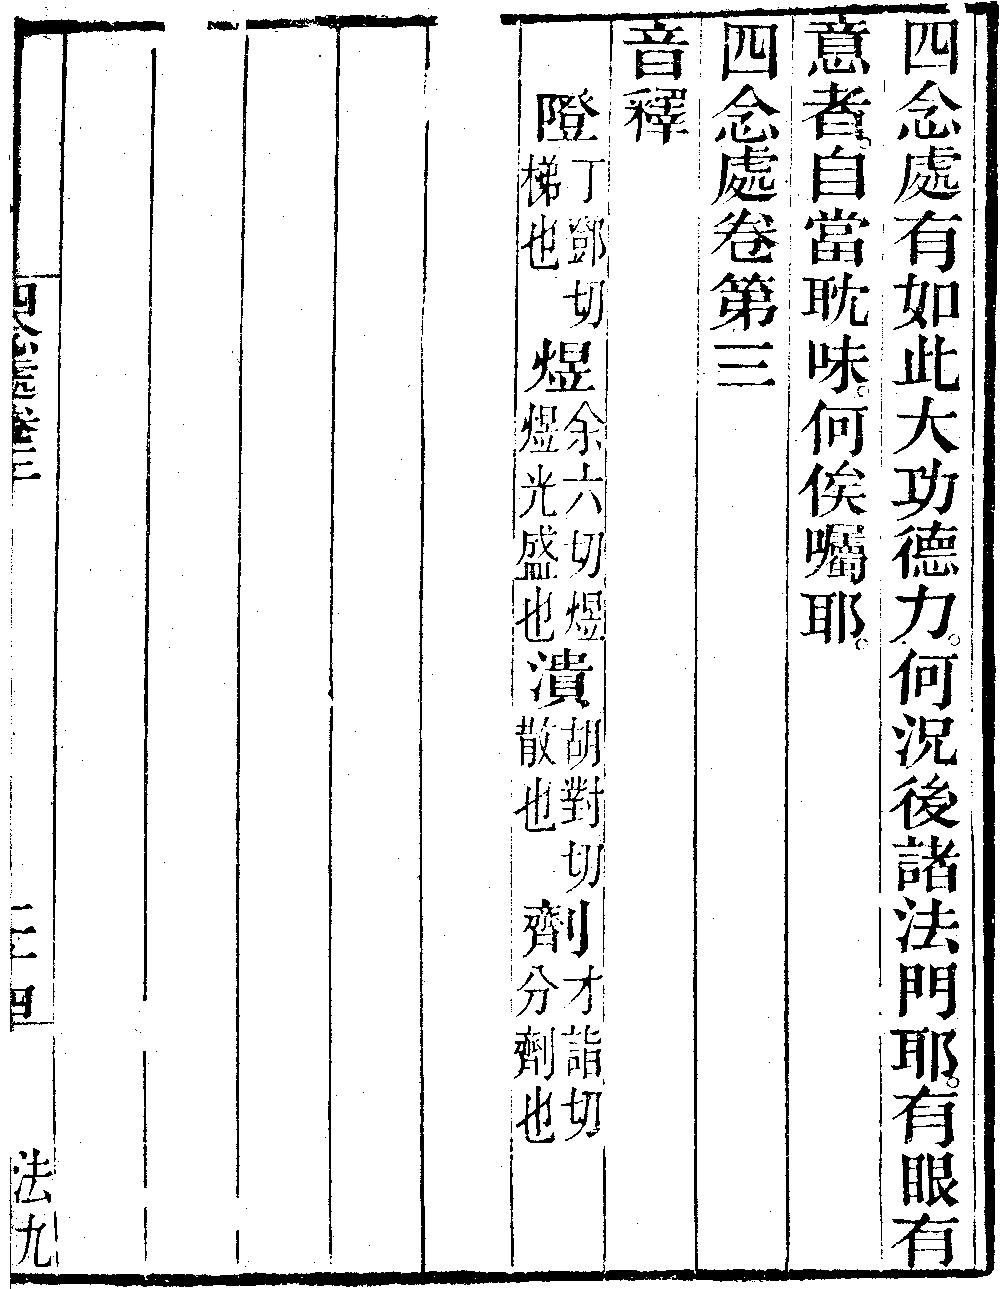 四念處有如此大功德力。何況後諸法門耶。有眼有
意者。自當耽味。何俟囑耶。
四念處卷第三
音釋
隥丁鄧切梯也 煜余六切煜煜光盛也 潰胡對切散也 劑才詣切分劑也
四念處卷三
二十四
法九